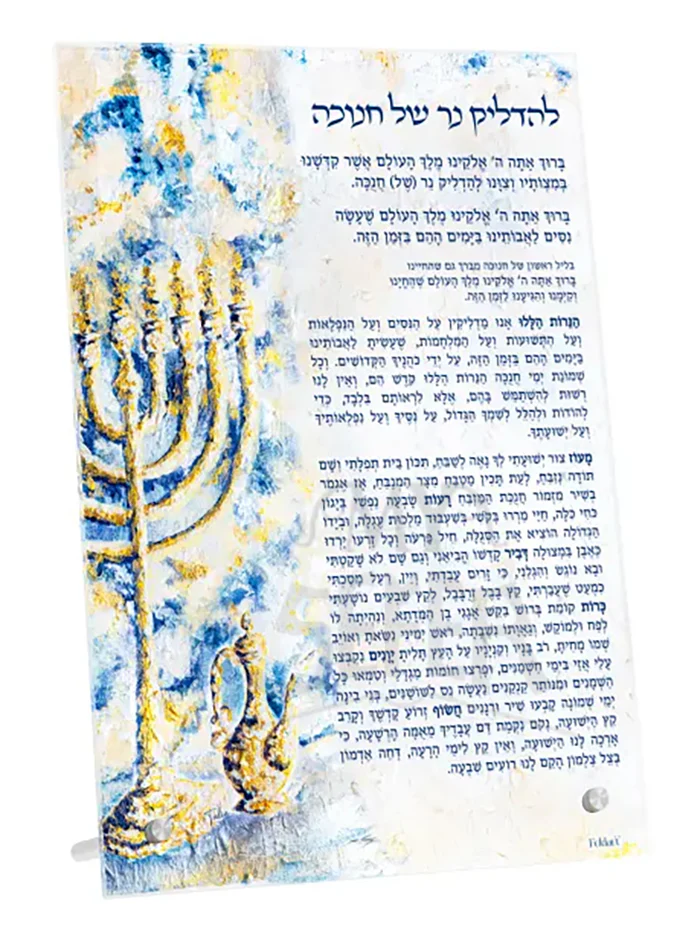 להדליק נר של חנוכה
בָּרוּךְ אַתָּה ה' אֱלֹקֵינוּ מֶלֶךְ הָעוֹלָם אֲשֶׁר קִדְּשָׁנוּ
בְּמִצְוֹתָיו וְצִוָּנוּ לְהַדְלִיק נֵר (שֶׁל) חֲנֻכָּה.
בָּרוּךְ אַתָּה ה' אֱלֹקֵינוּ מֶלֶךְ הָעוֹלָם שֶׁעָשָׂה
נִסִּים לַאֲבוֹתֵינוּ בַּיָּמִים הָהֵם בַּזְּמַן הַזֶּה.
בליל ראשון של חנוכה מברך גם שהחיינו
בָּרוּךְ אַתָּה ה' אֱלֹקֵינוּ מֶלֶךְ הָעוֹלָם שֶׁהֶחֱיָנוּ
וְקִיְּמָנוּ וְהִגִּיעָנוּ לַזְּמַן הַזֶּה.
הַנֵּרוֹת הַלָּלוּ אָנוּ מַדְלִיקִין עַל הַנִּסִּים וְעַל הַנִּפְלָאוֹת
וְעַל הַתְּשׁוּעוֹת וְעַל הַמִּלְחָמוֹת, שֶׁעָשִׂיתָ לַאֲבוֹתֵינוּ
בַּיָּמִים הָהֵם בַּזְּמַן הַזֶּה, עַל יְדֵי כֹּהֲנֶיךָ הַקְּדוֹשִׁים. וְכָל
שְׁמוֹנַת יְמֵי חֲנֻכָּה הַנֵּרוֹת הַלָּלוּ קֹדֶשׁ הֵם, וְאֵין לָנוּ
רְשׁוּת לְהִשְׁתַּמֵּשׁ בָּהֶם, אֶלָּא לִרְאוֹתָם בִּלְבַד, כְּדֵי
לְהוֹדוֹת וּלְהַלֵּל לְשִׁמְךָ הַגָּדוֹל, עַל נִסֶּיךָ וְעַל נִפְלְאוֹתֶיךָ
וְעַל יְשׁוּעָתֶךָ.
מָעוֹז צוּר יְשׁוּעָתִי לְךָ נָאֶה לְשַׁבֵּחַ, תִּכּוֹן בֵּית תְּפִלָּתִי וְשָׁם
תּוֹדָה נְזַבֵּחַ, לְעֵת תָּכִין מַטְבֵּחַ מִצָּר הַמְנַבֵּחַ, אָז אֶגְמֹר
בְּשִׁיר מִזְמוֹר חֲנֻכַּת הַמִּזְבֵּחַ רָעוֹת שָׂבְעָה נַפְשִׁי בְּיָגוֹן
כֹּחִי כָּלָה, חַיַּי מֵרְרוּ בְּקֹשִׁי בְּשִׁעְבּוּד מַלְכוּת עֶגְלָה, וּבְיָדוֹ
הַגְּדוֹלָה הוֹצִיא אֶת הַסְּגֻלָּה, חֵיל פַּרְעֹה וְכָל זַרְעוֹ יָרְדוּ
כְּאֶבֶן בִּמְצוּלָה דְּבִיר קָדְשׁוֹ הֱבִיאַנִי וְגַם שָׁם לֹא שָׁקַטְתִּי
וּבָא נוֹגֵשׂ וְהִגְלַנִי, כִּי זָרִים עָבַדְתִּי, וְיֵין רַעַל מָסַכְתִּי
כִּמְעַט שֶׁעָבַרְתִּי, קֵץ בָּבֶל זְרֻבָּבֶל, לְקֵץ שִׁבְעִים נוֹשַׁעְתִּי
כְּרוֹת קוֹמַת בְּרוֹשׁ בִּקֵּשׁ אֲגָגִי בֶּן הַמְּדָתָא, וְנִהְיָתָה לוֹ
לְפַח וּלְמוֹקֵשׁ, וְגַאֲוָתוֹ נִשְׁבָּתָה, רֹאשׁ יְמִינִי נִשֵּׂאתָ וְאוֹיֵב
שְׁמוֹ מָחִיתָ, רֹב בָּנָיו וְקִנְיָנָיו עַל הָעֵץ תָּלִיתָ יְוָנִים נִקְבְּצוּ
עָלַי אֲזַי בִּימֵי חַשְׁמַנִּים, וּפָרְצוּ חוֹמוֹת מִגְדָּלַי וְטִמְּאוּ כָּל
הַשְּׁמָנִים וּמִנּוֹתַר קַנְקַנִּים נַעֲשָׂה נֵס לַשּׁוֹשַׁנִּים, בְּנֵי בִינָה
יְמֵי שְׁמוֹנָה קָבְעוּ שִׁיר וּרְנָנִים חֲשׂוֹף זְרוֹעַ קָדְשֶׁךָ וְקָרֵב
קֵץ הַיְשׁוּעָה, נְקֹם נִקְמַת דַּם עֲבָדֶיךָ מֵאֻמָּה הָרְשָׁעָה, כִּי
אָרְכָה לָנוּ הַיְשׁוּעָה, וְאֵין קֵץ לִימֵי הָרָעָה, דְּחֵה אַדְמוֹן
בְּצֵל צַלְמוֹן הָקֵם לָנוּ רוֹעִים שִׁבְעָה.